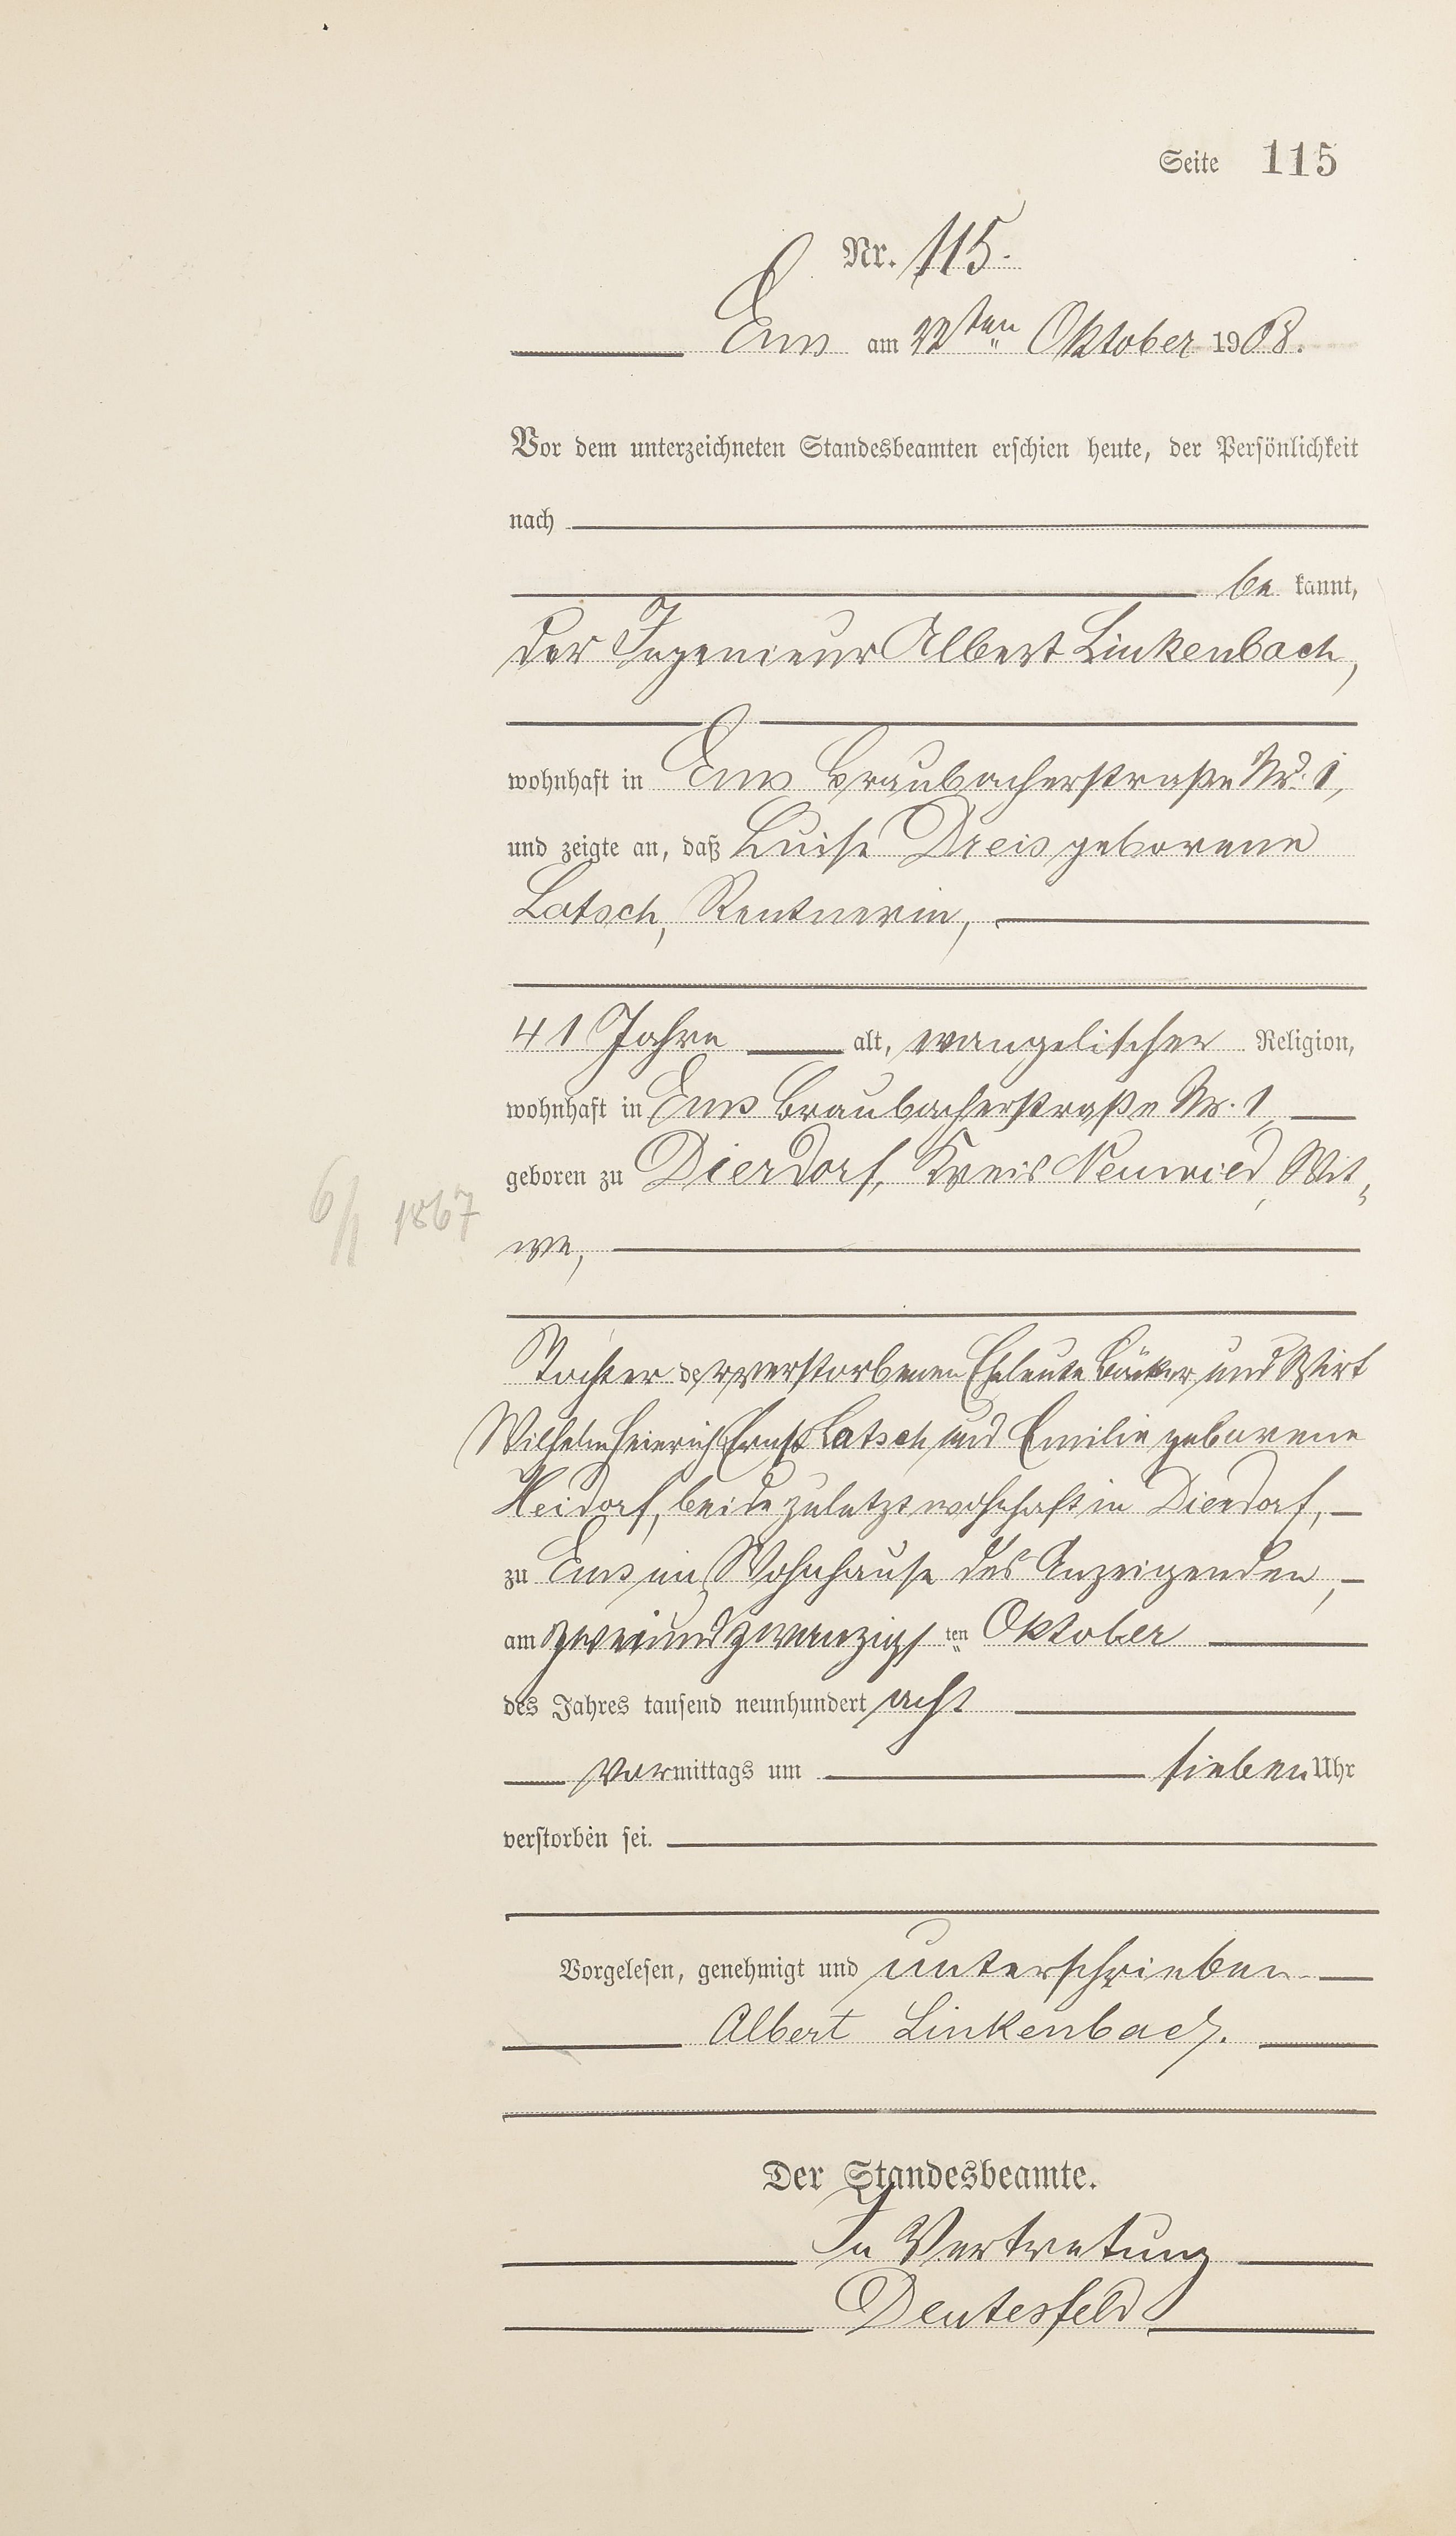 Seite 115
Nr. 115.
Ems am 22ten Oktober 1908.
Vor dem unterzeichneten Standesbeamten erschien heute, der Persönlichkeit
nach
be kannt,
der Ingenieur Albert Linkenbach,
wohnhaft in Ems Braubacherstraße Nr. 1,
und zeigte an, daß Luise Dreis geborene
Latsch, Rentnerin,
41 Jahre alt, evangelischer Religion,
wohnhaft in Ems Braubacherstraße Nr. 1
geboren zu Dierdorf, Kreis Neuwied, Wit-
6/1 1867
we,
Tochter der verstorbenen Eheleute Bäcker und Wirt
Wilhelm Heinrich Ernst Latsch und Emilie geborene
Heidorf, beide zuletzt wohnhaft in Dierdorf,
zu Ems im Wohnhause des Anzeigenden,
am zweiundzwanzigsten Oktober
des Jahres tausend neunhundert acht
vormittags um sieben Uhr
verstorben sei.
Vorgelesen, genehmigt und unterschrieben
Albert Linkenbach.
Der Standesbeamte.
In Vertretung
Deutesfeld